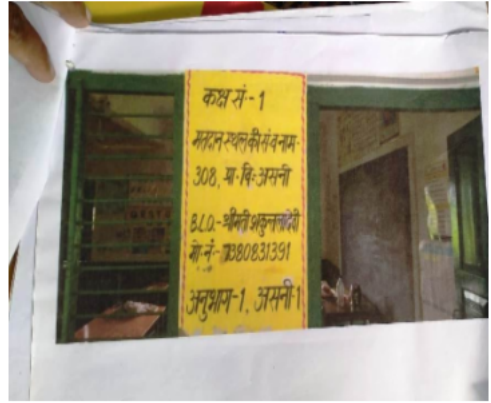 कक्ष सं:- 1
मतदान स्थल की सं व नाम-
308, प्रा. वि. असनी
B.L.O.- श्रीमती शकुन्तला देवी
मो. नं:- 7380831391
अनुभाग-1, असनी-1